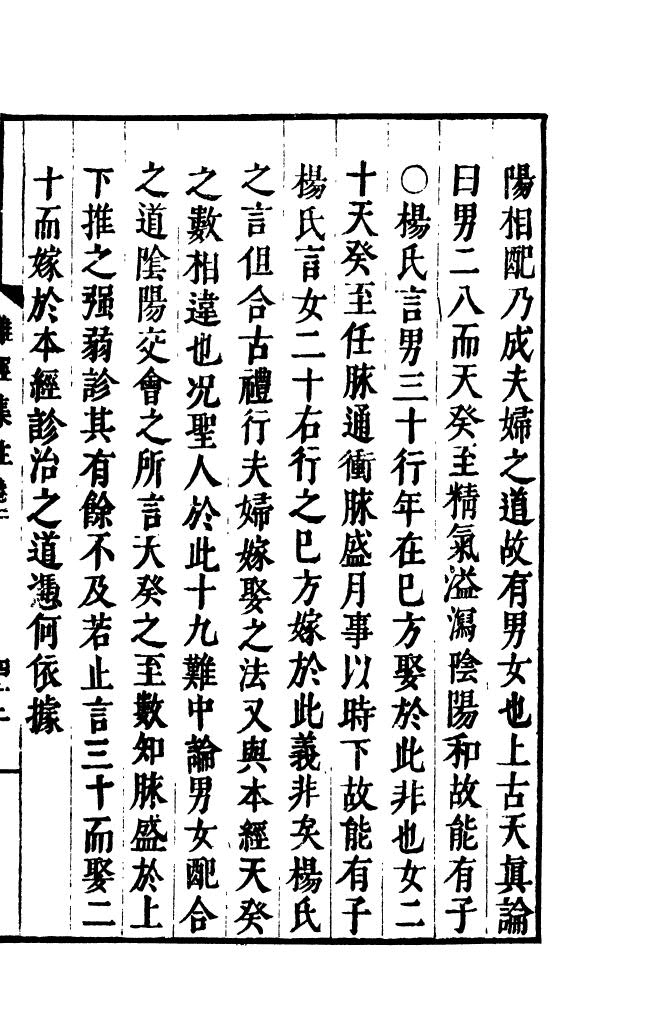 陽相配乃成夫婦之道故有男女也上古天眞論
曰男二八而天癸至精氣溢瀉陰陽和故能有子
○楊氏言男三十行年在巳方娶於此非也女二
十天癸至任脉通衝脉盛月事以時下故能有子
楊氏言女二十右行之巳方嫁於此義非矣楊氏
之言但合古禮行夫婦嫁娶之法又與本經天癸
之數相違也况聖人於此十九難中論男女配合
之道陰陽交會之所言天癸之至數知脉盛於上
下推之强弱診其有餘不及若止言三十而娶二
十而嫁於本經診治之道憑何依據
難經集注卷二